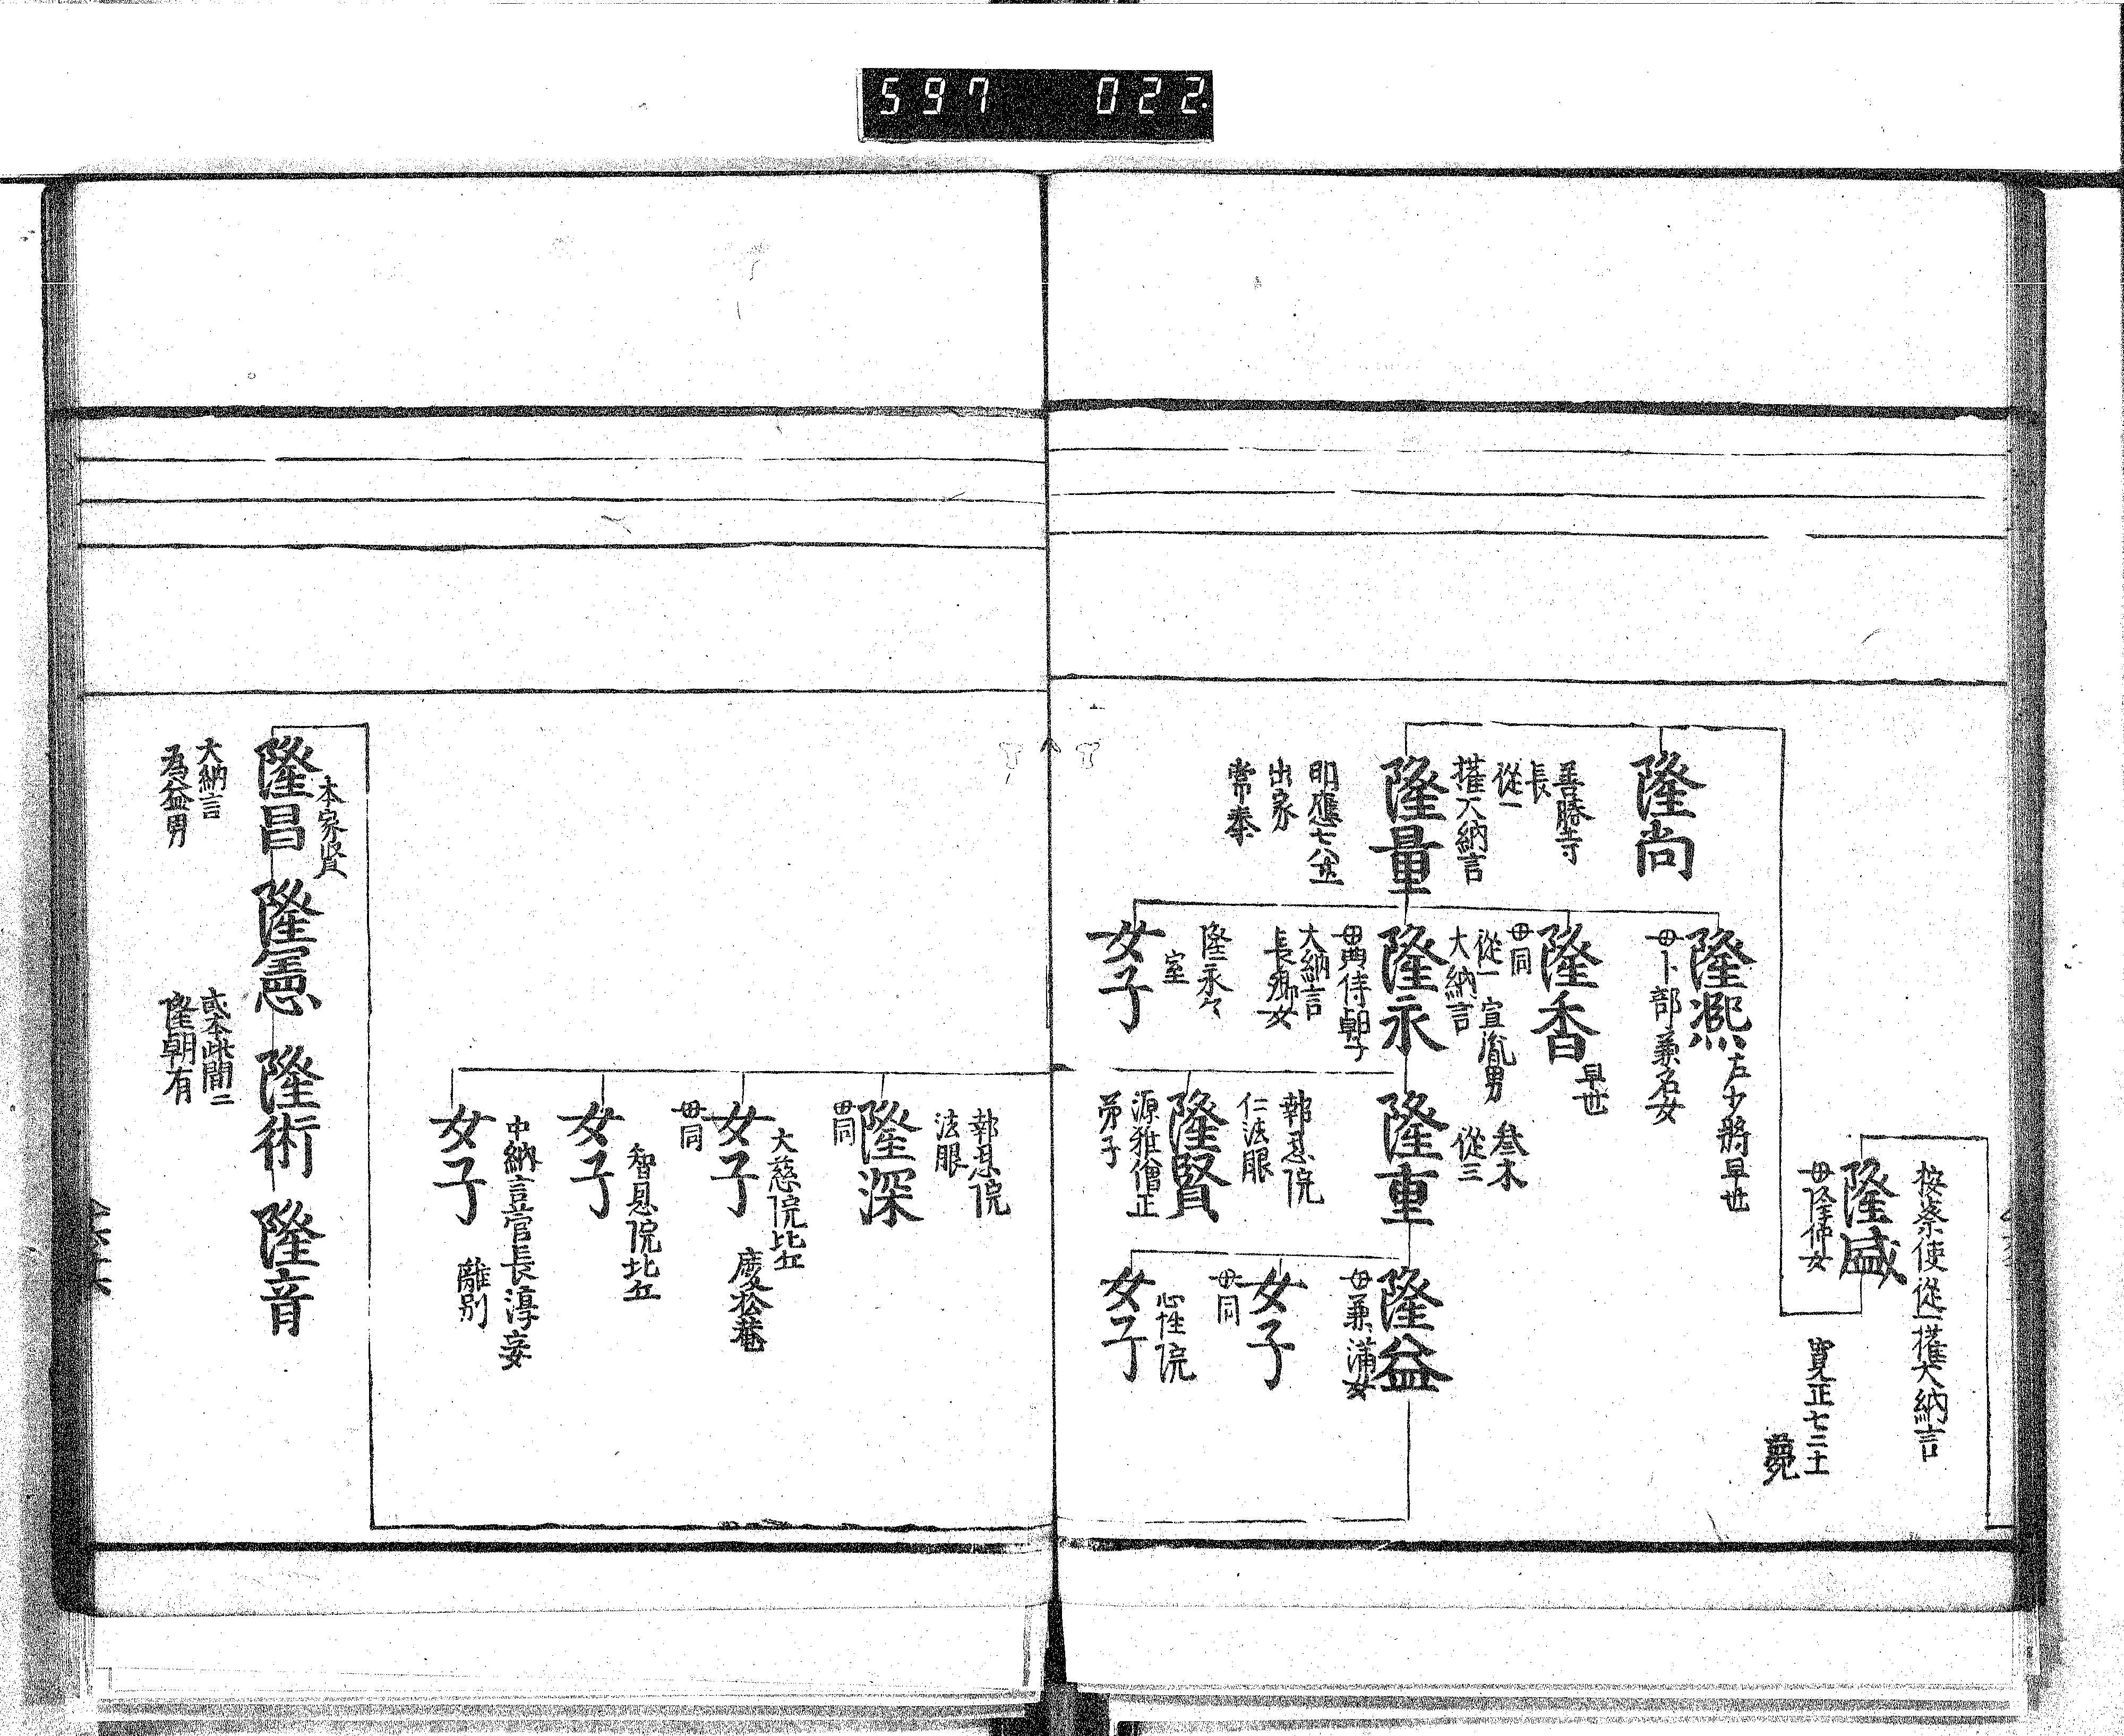 597 022
按察使従一権大納言
隆盛
母隆仲女
寛正七二十
薨
隆尚
善勝寺
長
従一
権大納言
隆量
明應七八廿五
出家
常泰
隆熈
左少将早世
母卜部兼名女
隆香
早世
母同
従一宣胤男
大納言
隆永
母典侍朝子
大納言
長郷女
女子
隆永々
室
参木
従三
隆重
報恩院
仁法眼
隆賢
源雅僧正
弟子
隆益
母兼満女
女子
母同
女子
心性院
報恩院
法眼
隆深
母同
女子
大慈院比丘
慶松菴
母同
女子
智恩院比丘
女子
中納言菅長淳妾
離別
本家賢
隆昌
大納言
為益男
隆憲
或本此間ニ
隆朝有
隆術
隆音